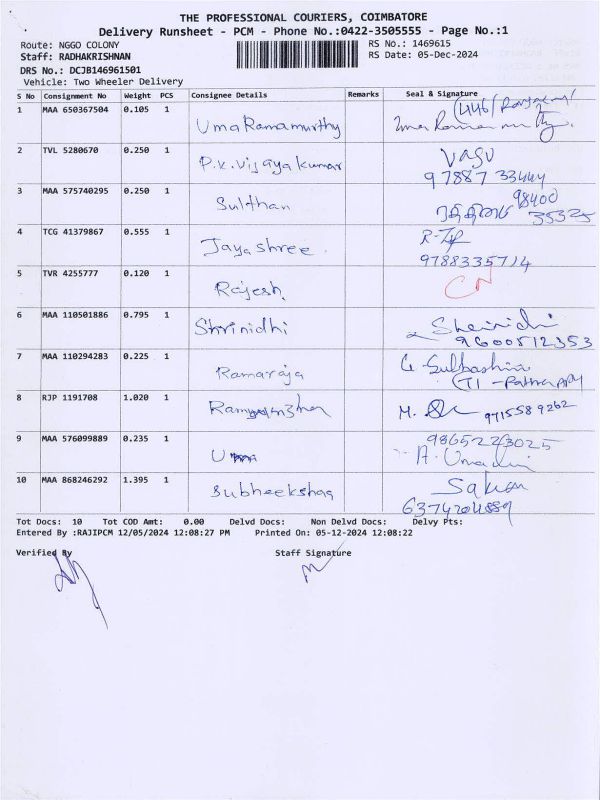 THE PROFESSIONAL COURIERS, COIMBATORE
Delivery Runsheet - PCM - Phone No.:0422-3505555 - Page No.:1
Route: NGGO COLONY
RS No.: 1469615
Staff: RADHAKRISHNAN
RS Date: 05-Dec-2024
DRS No.: DCJB146961501
Vehicle: Two Wheeler Delivery
S No Consignment No Weight PCS Consignee Details Remarks Seal & Signature
1 MAA 650367504 0.105 1 Uma Ramamurthy
2 TVL 5280670 0.250 1 P.V. Vijayakumar VASU
97887 33444
3 MAA 575740295 0.250 1 Sulthan 98400
35325
4 TCG 41379867 0.555 1 Jayashree.
9788335714
5 TVR 4255777 0.120 1 Rajesh CN
6 MAA 110501886 0.795 1 Shrinidhi
9600512353
7 MAA 110294283 0.225 1 Ramaraja
8 RJP 1191708 1.020 1 M. 9715589262
9 MAA 576099889 0.235 1 9865223025
10 MAA 868246292 1.395 1 Subheekshaa
Tot Docs: 10 Tot COD Amt: 0.00 Delvd Docs: Non Delvd Docs: Delvy Pts:
Entered By :RAJIPCM 12/05/2024 12:08:27 PM Printed On: 05-12-2024 12:08:22
Verified By Staff Signature